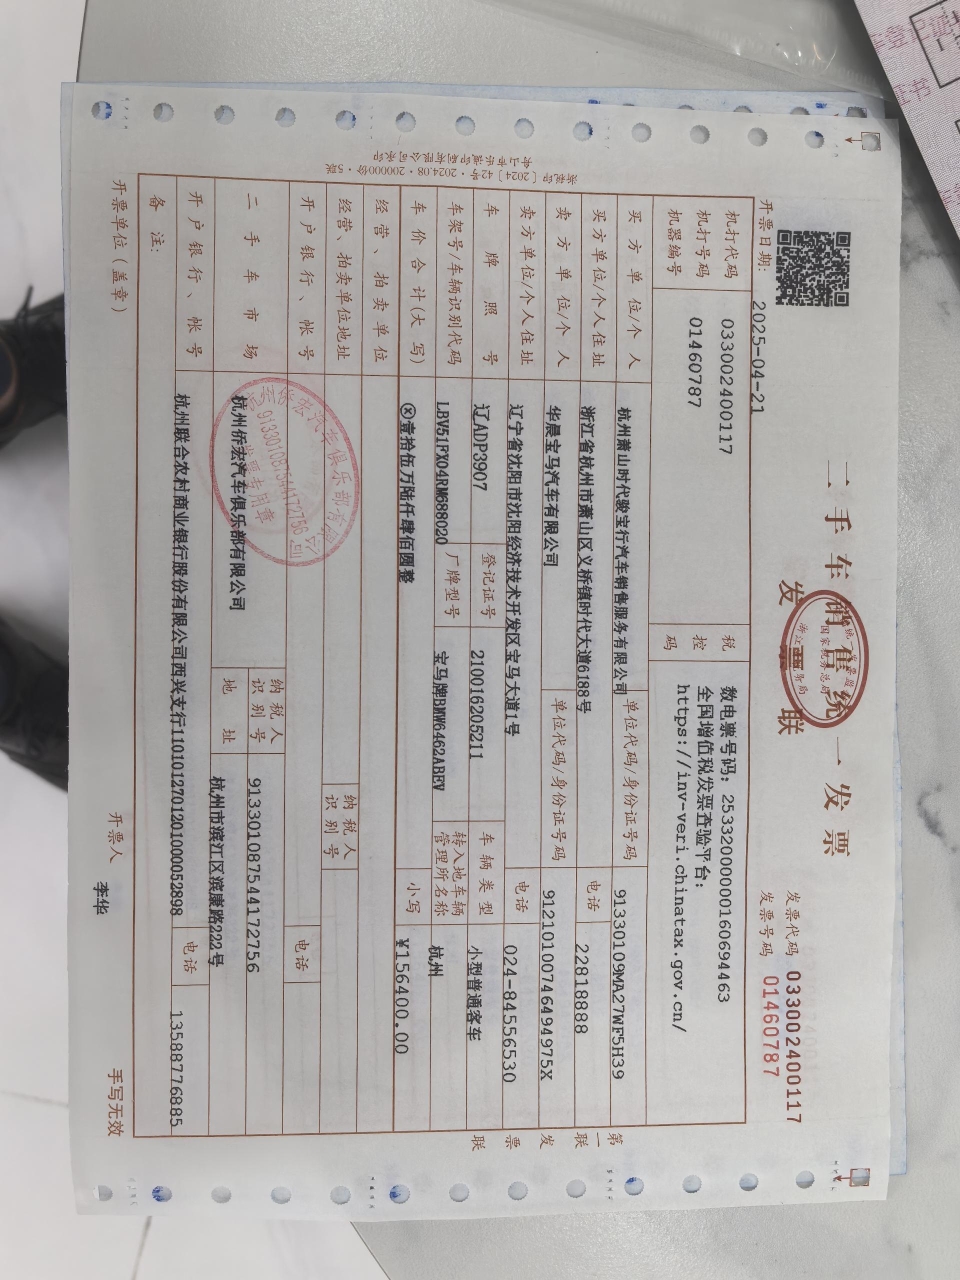 二手车销售统一发票
发票联
发票代码 033002400117
发票号码 01460787
开票日期: 2025-04-21
机打代码 033002400117
机打号码 01460787
机器编号
税控码
数电票号码: 25332000000160694463
全国增值税发票查验平台:
https://inv-veri.chinatax.gov.cn/
买方单位/个人 杭州萧山时代骏宝行汽车销售服务有限公司 单位代码/身份证号码 91330109MA27WF5H39
买方单位/个人住址 浙江省杭州市萧山区义桥镇时代大道6188号 电话 22818888
卖方单位/个人 华晨宝马汽车有限公司 单位代码/身份证号码 91210100746494975X
卖方单位/个人住址 辽宁省沈阳市沈阳经济技术开发区宝马大道1号 电话 024-84556530
车牌照号 辽ADP3907 登记证号 210016205211 车辆类型 小型普通客车
车架号/车辆识别代码 LBV51FX04RM688020 厂牌型号 宝马牌BMW6462ABEV 转入地车辆管理所名称 杭州
车价合计(大写) ⊗壹拾伍万陆仟肆佰圆整 小写 ¥156400.00
经营、拍卖单位
经营、拍卖单位地址 纳税人识别号
开户银行、帐号 电话
二手车市场 杭州侨宏汽车俱乐部有限公司 纳税人识别号 91330108754417275​6
地址 杭州市滨江区滨康路222号
开户银行、帐号 杭州联合农村商业银行股份有限公司西兴支行11010127012010000528​98 电话 13588776885
备注:
开票单位(盖章) 开票人 李华 手写无效
第一联 发票联
浙税印〔2024〕42号·2024.08·200000份·5联
913301087544172756
发票专用章
国家税务总局